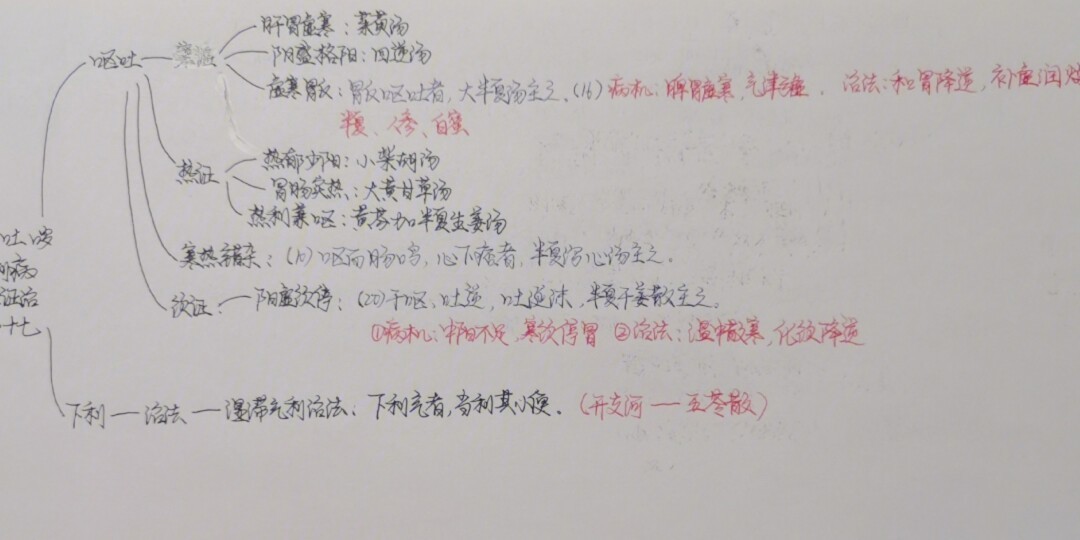 肝胃虚寒：茱萸汤
呕吐 — 寒证 — 阴盛格阳：四逆汤
虚寒胃反：胃反呕吐者，大半夏汤主之。(16) 病机：脾胃虚寒，气津 虚． 治法：和胃降逆，补虚润燥
半夏、人参、白蜜
热郁少阳：小柴胡汤
热证 胃肠实热：大黄甘草汤
热利兼呕：黄芩加半夏生姜汤
吐哕
寒热错杂：(10)呕而肠鸣，心下痞者，半夏泻心汤主之。
病
证治
饮证：— 阳虚饮停：(20)干呕、吐逆，吐涎沫，半夏干姜散主之。
十七
①病机：中阳不足，寒饮停胃 ②治法：温中散寒，化饮降逆
下利 — 治法 — 湿滞气利治法：下利气者，当利其小便．(开支河 — 五苓散)